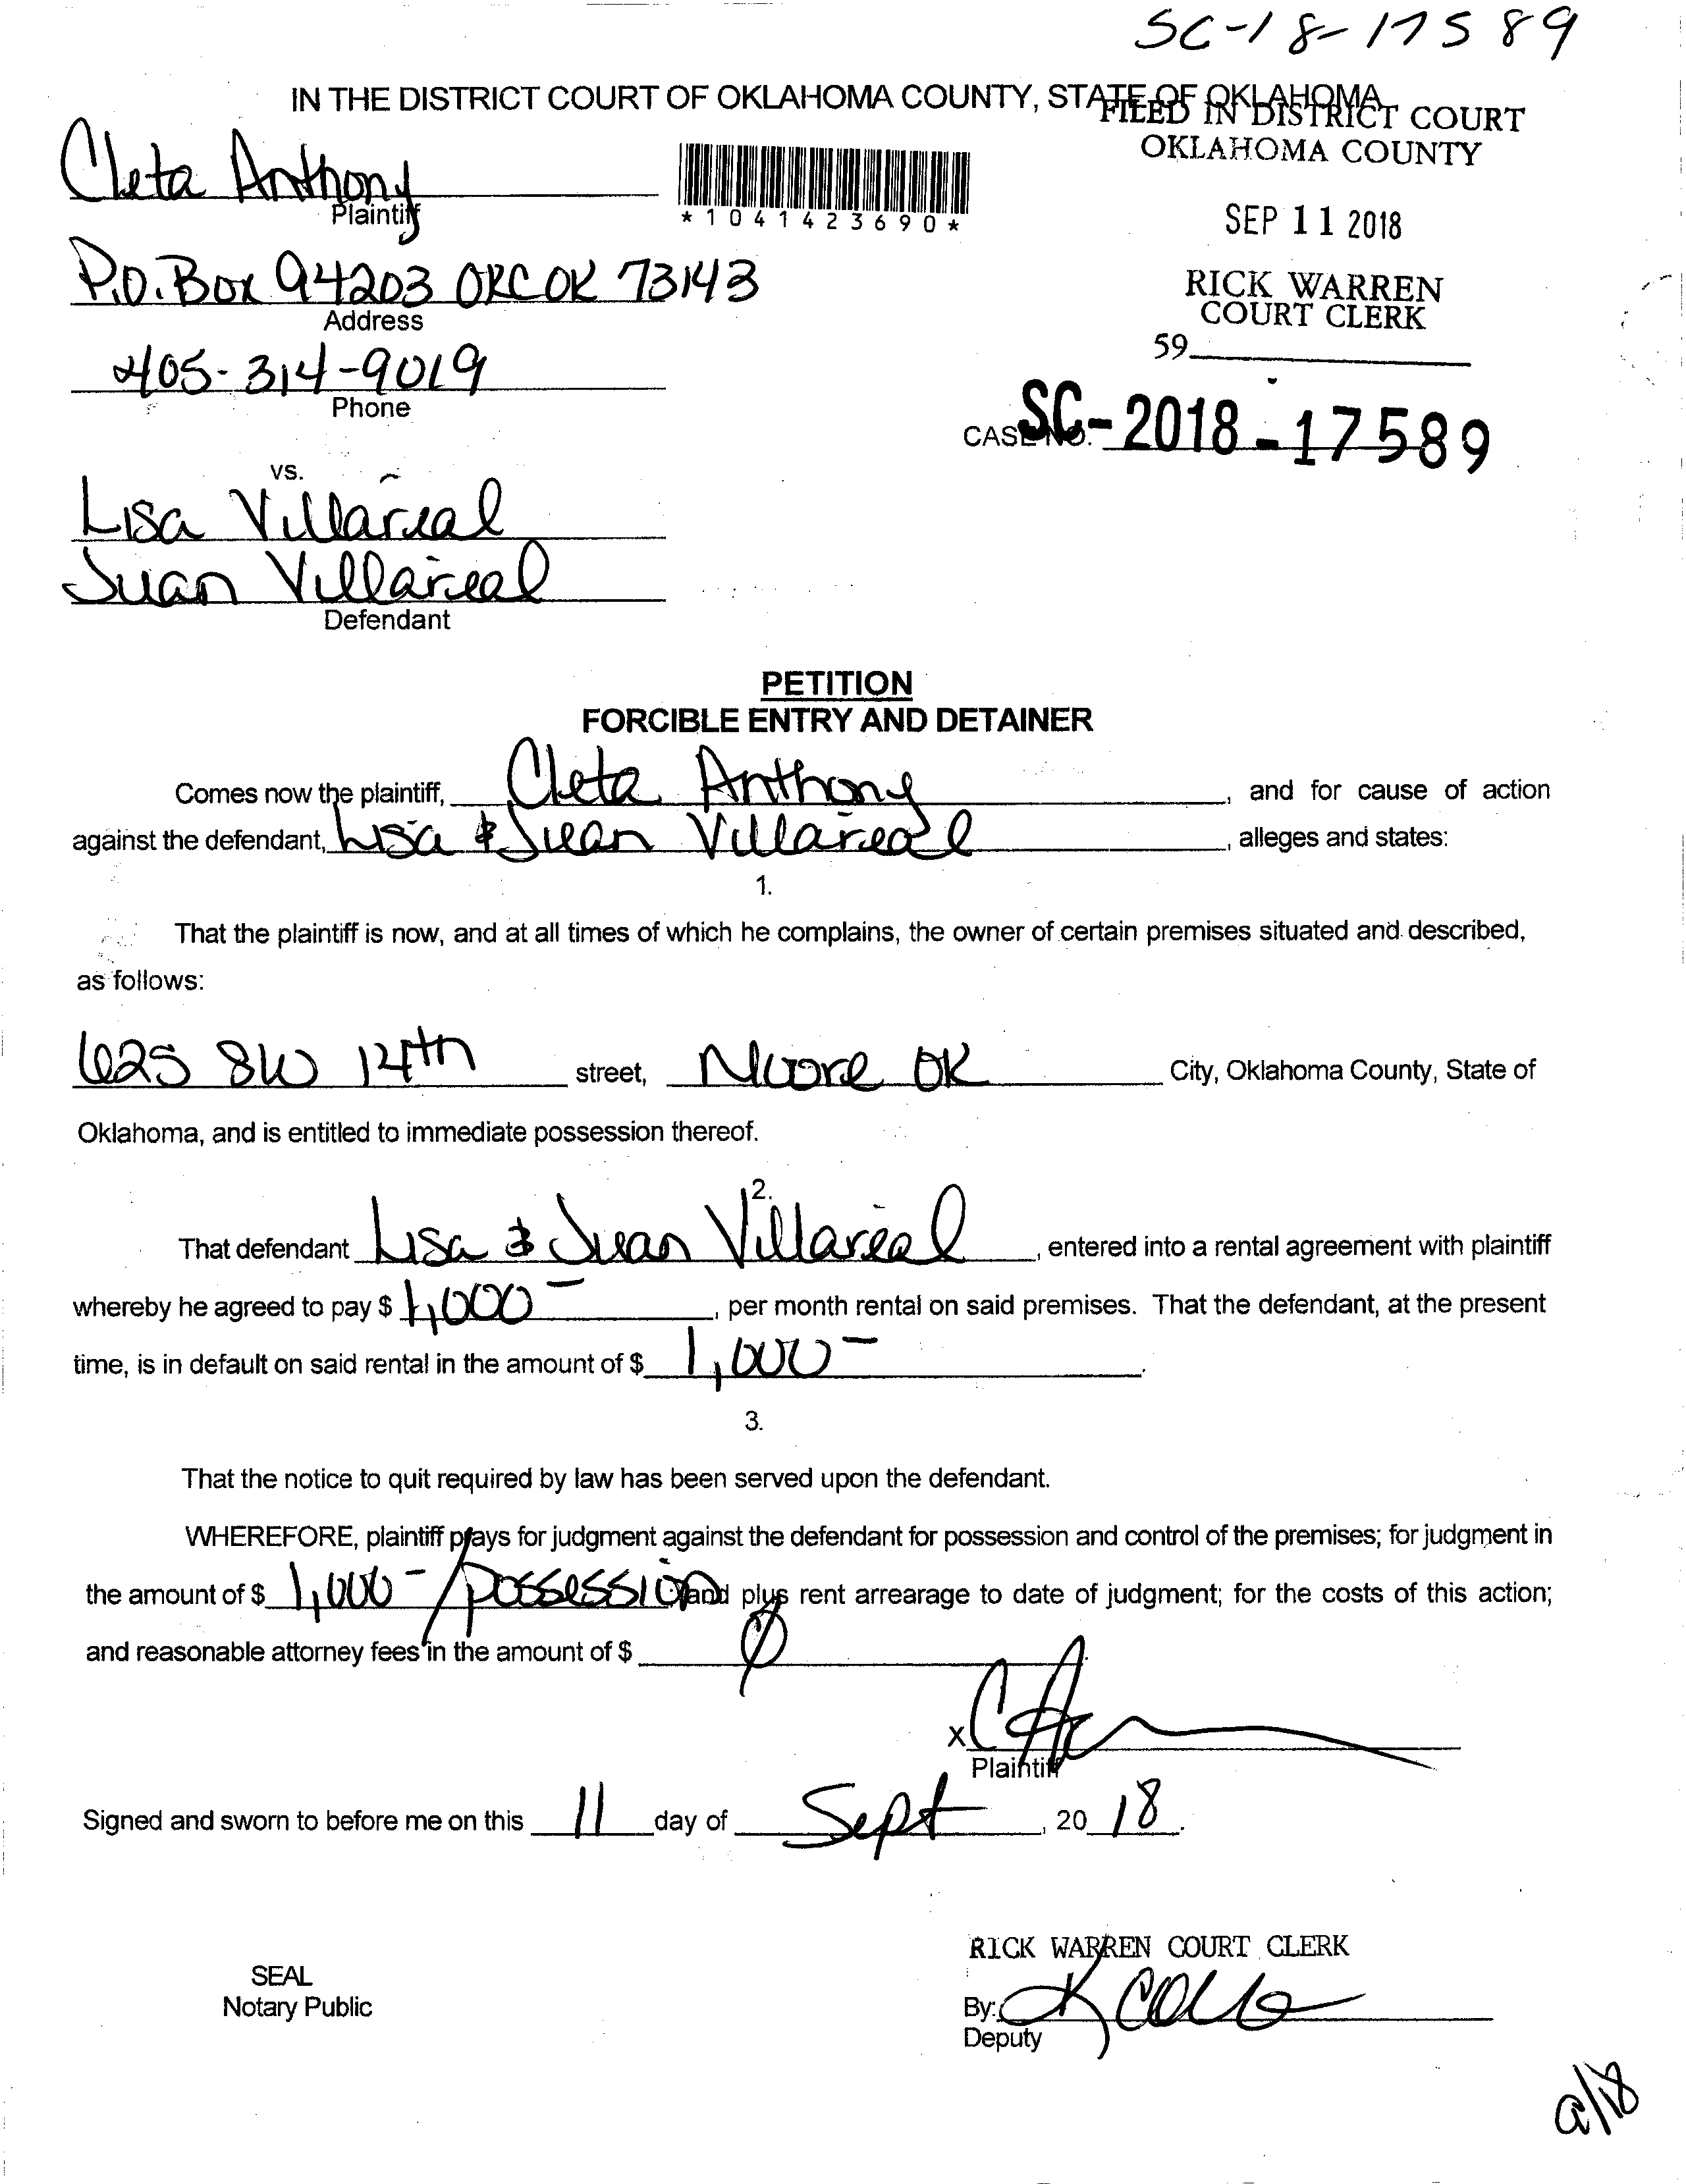 SC-18-17589
IN THE DISTRICT COURT OF OKLAHOMA COUNTY, STATE OF OKLAHOMA
FILED IN DISTRICT COURT
OKLAHOMA COUNTY
Cleta Anthony
Plaintiff
*1041423690*
SEP 11 2018
P.O. Box 94203 OKC OK 73143
Address
RICK WARREN
COURT CLERK
59
405-314-9019
Phone
CASE NO. SC-2018-17589
vs.
Lisa Villareal
Juan Villareal
Defendant
PETITION
FORCIBLE ENTRY AND DETAINER
Comes now the plaintiff, Cleta Anthony, and for cause of action
against the defendant, Lisa & Juan Villareal, alleges and states:
1.
That the plaintiff is now, and at all times of which he complains, the owner of certain premises situated and described,
as follows:
625 SW 14th street, Moore OK City, Oklahoma County, State of
Oklahoma, and is entitled to immediate possession thereof.
2.
That defendant Lisa & Juan Villareal, entered into a rental agreement with plaintiff
whereby he agreed to pay $ 1,000-, per month rental on said premises. That the defendant, at the present
time, is in default on said rental in the amount of $ 1,000-.
3.
That the notice to quit required by law has been served upon the defendant.
WHEREFORE, plaintiff prays for judgment against the defendant for possession and control of the premises; for judgment in
the amount of $ 1,000-/possession and plus rent arrearage to date of judgment; for the costs of this action;
and reasonable attorney fees in the amount of $ Ø.
X
Plaintiff
Signed and sworn to before me on this 11 day of Sept, 2018.
RICK WARREN COURT CLERK
SEAL
Notary Public
By:
Deputy